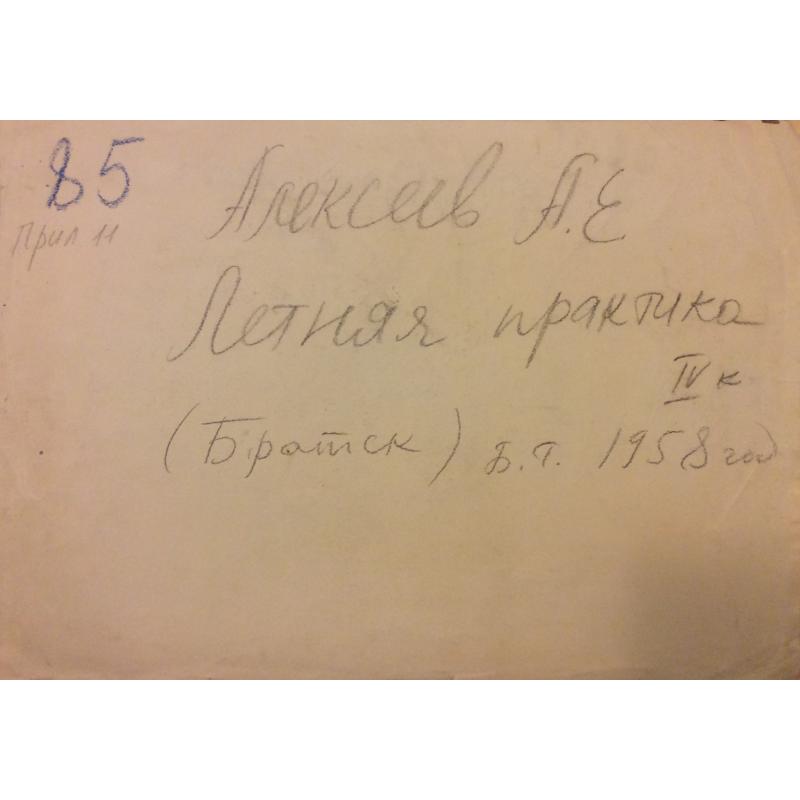 85
Прил 11
Алексеев А.Е
Летняя практика
IV к
(Братск) б.т. 1958 год